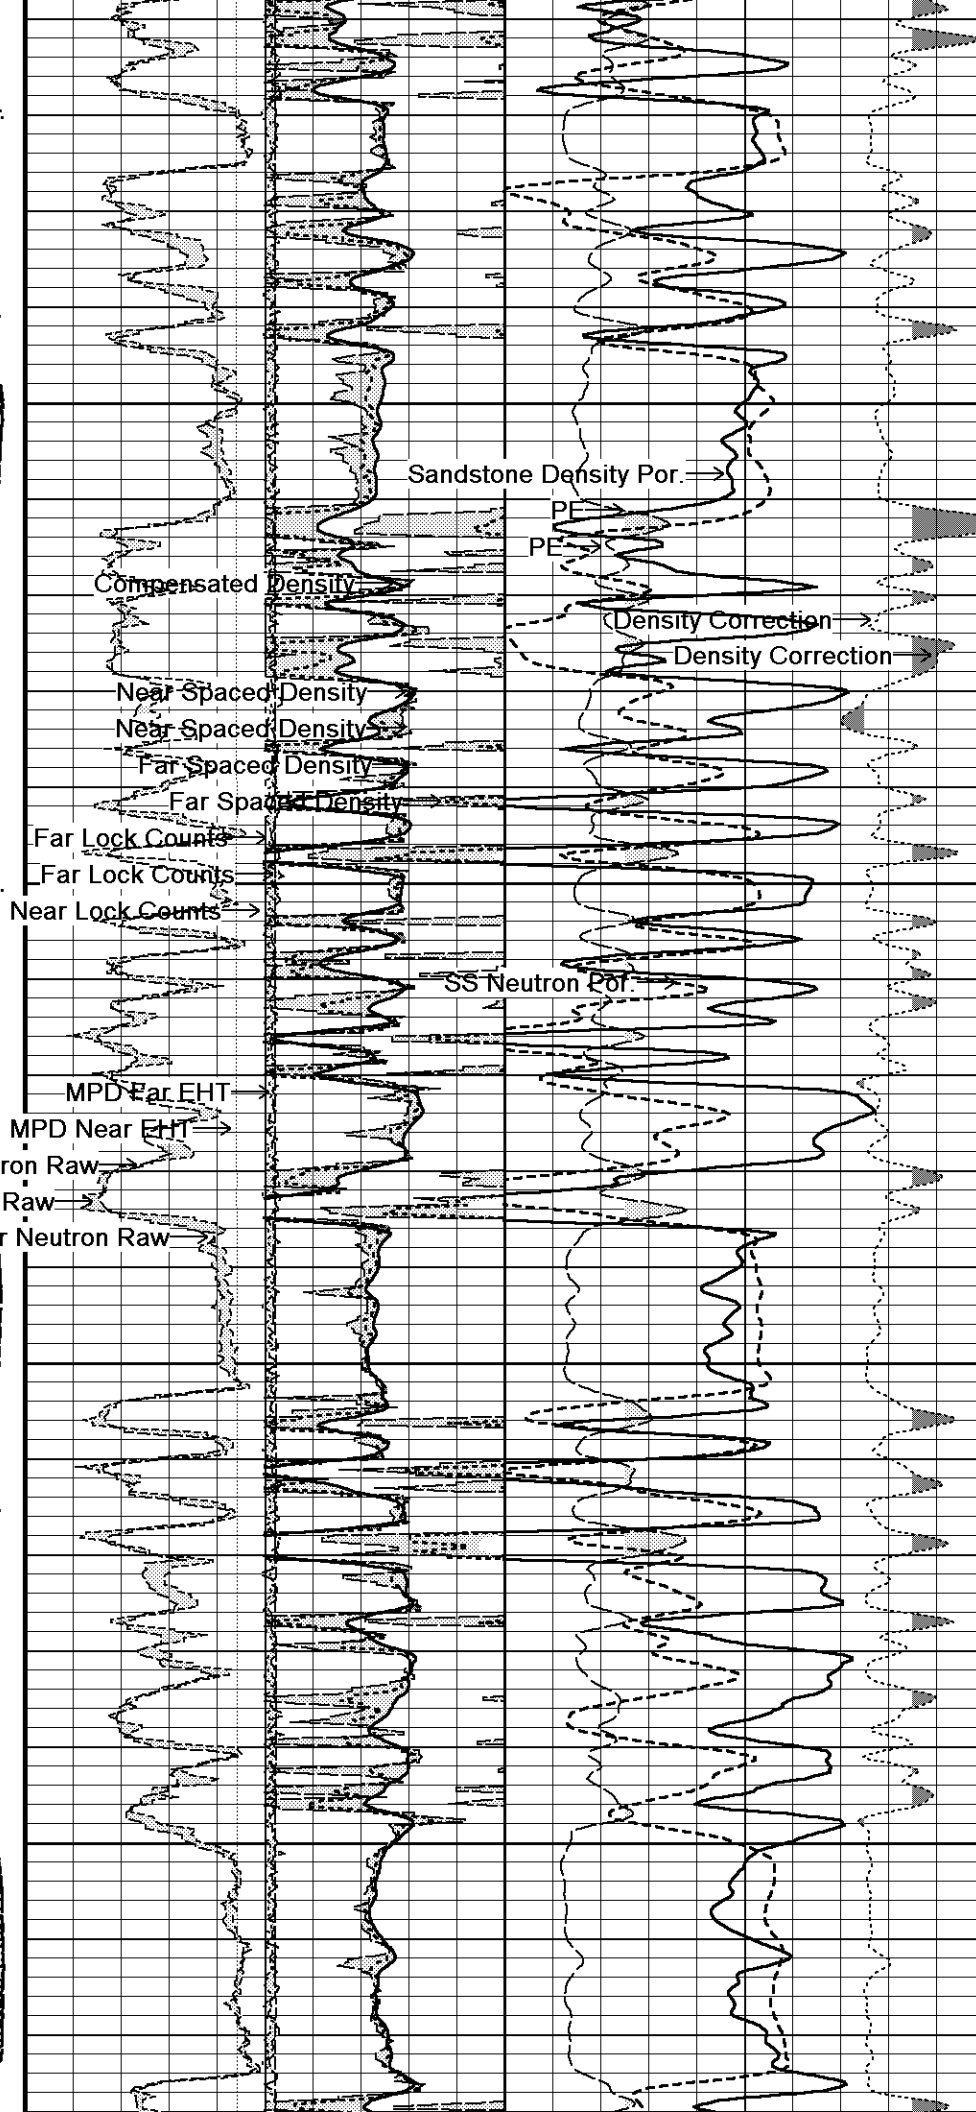 Sandstone Density Por.
PE
PE
Compensated Density
Density Correction
Density Correction
Near Spaced Density
Near Spaced Density
Far Spaced Density
Far Spaced Density
Far Lock Counts
Far Lock Counts
Near Lock Counts
SS Neutron Por.
MPD Far EHT
MPD Near EHT
ron Raw
Raw
r Neutron Raw